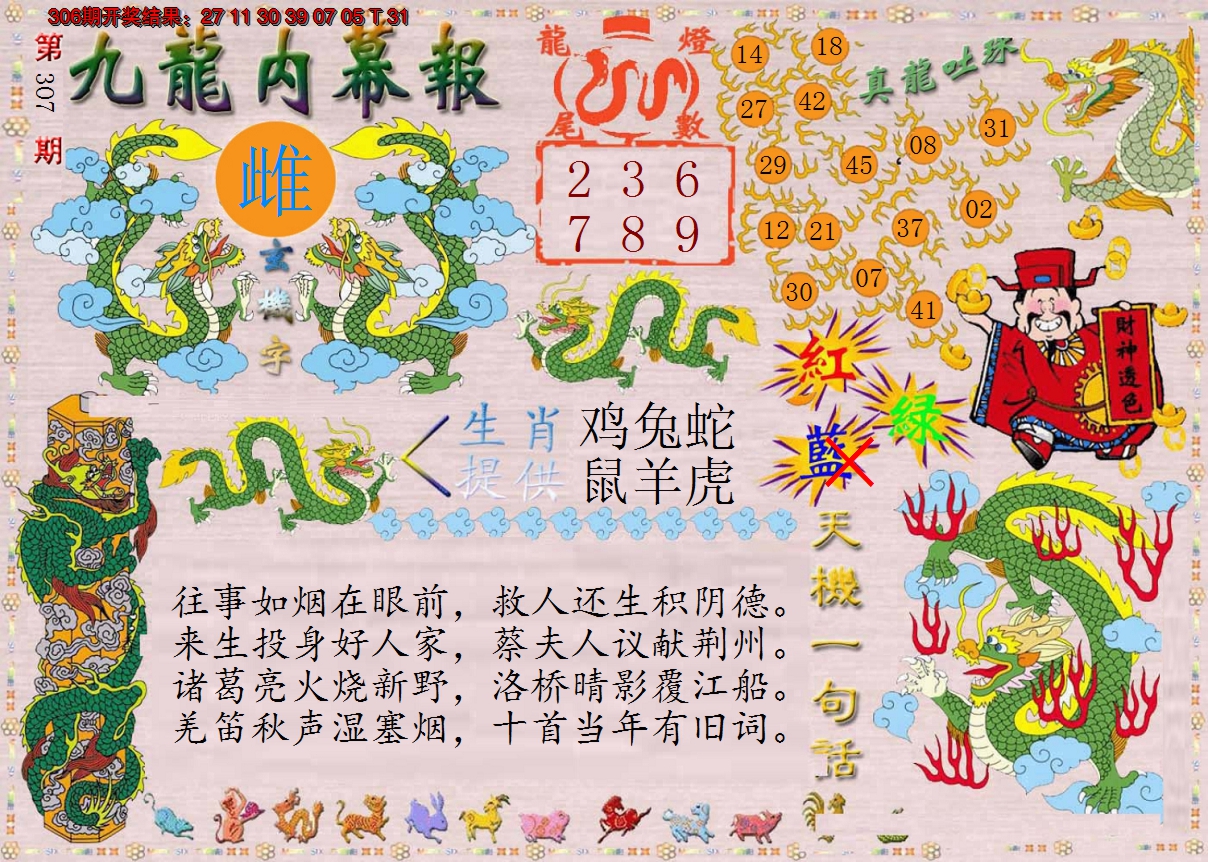 306期开奖结果：27 11 30 39 07 05 T 31
第307期
九龍内幕報
雌
玄機字
龍燈
尾數
2 3 6
7 8 9
真龍吐珠
14 18
27 42
29 45 08 31
12 21 37 02
30 07 41
紅
綠
藍
財神透色
生肖提供
鸡兔蛇
鼠羊虎
天機一句话
往事如烟在眼前，救人还生积阴德。
来生投身好人家，蔡夫人议献荆州。
诸葛亮火烧新野，洛桥晴影覆江船。
羌笛秋声湿塞烟，十首当年有旧词。